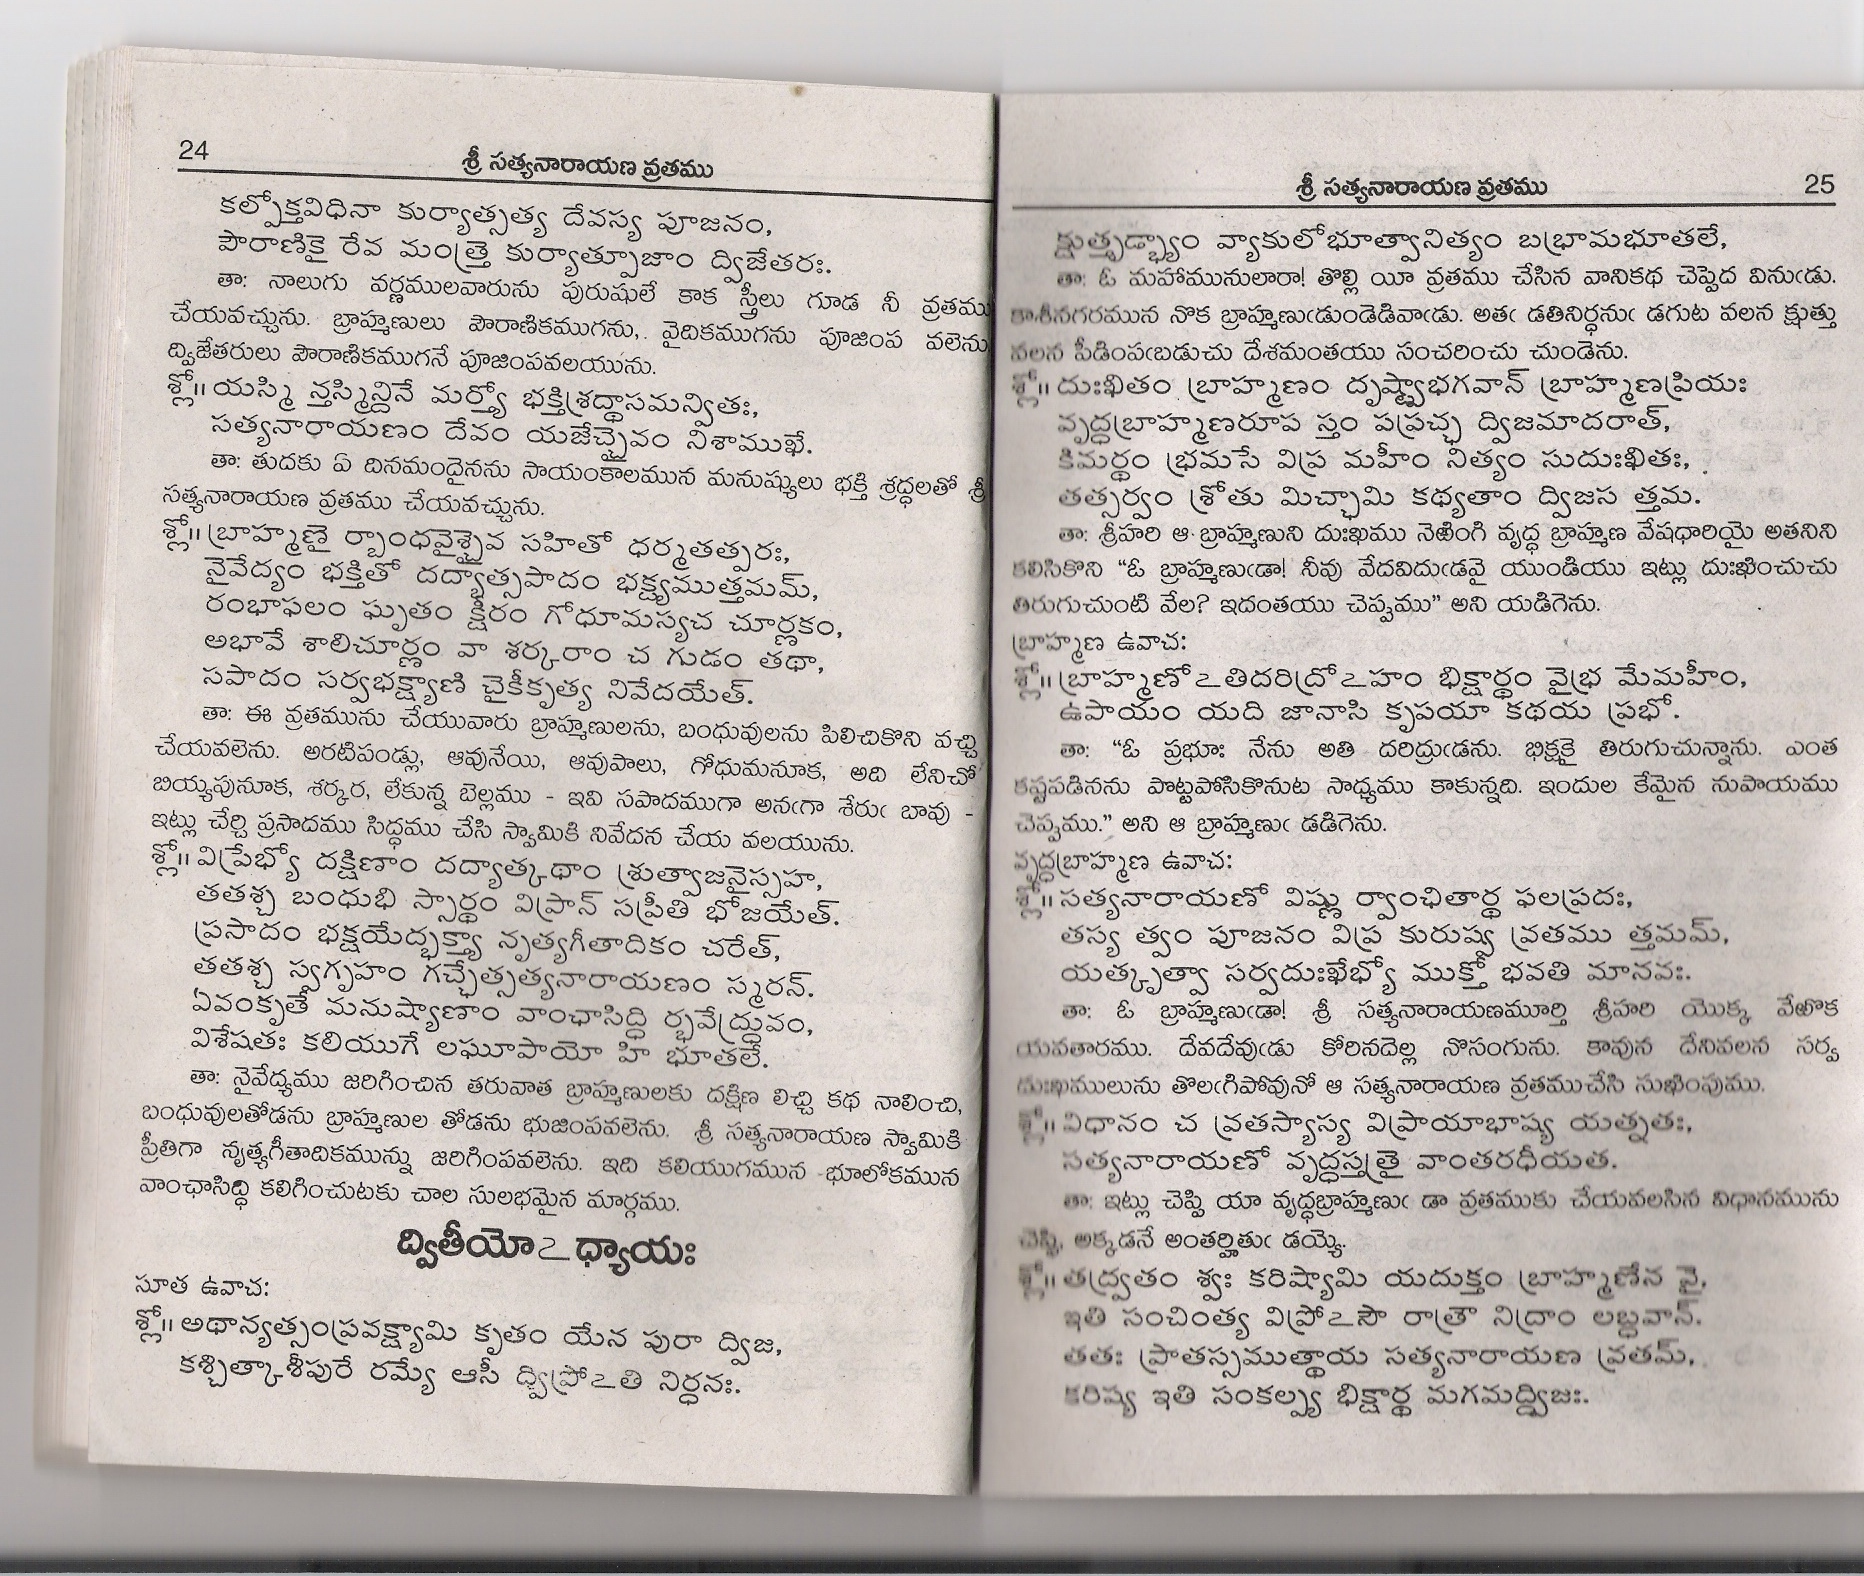 24
శ్రీ సత్యనారాయణ వ్రతము
కల్పోక్తవిధినా కుర్యాత్సత్య దేవస్య పూజనం,
పౌరాణికై రేవ మంత్రై కుర్యాత్పూజాం ద్విజేతరః.
తా: నాలుగు వర్ణములవారును పురుషులే కాక స్త్రీలు గూడ నీ వ్రతము
చేయవచ్చును. బ్రాహ్మణులు పౌరాణికముగను, వైదికముగను పూజింప వలెను
ద్విజేతరులు పౌరాణికముగనే పూజింపవలయును.
శ్లో॥ యస్మి న్తస్మిన్దినే మర్త్యో భక్తిశ్రద్ధాసమన్వితః,
సత్యనారాయణం దేవం యజేచ్చైవం నిశాముఖే.
తా: తుదకు ఏ దినమందైనను సాయంకాలమున మనుష్యులు భక్తి శ్రద్ధలతో శ్రీ
సత్యనారాయణ వ్రతము చేయవచ్చును.
శ్లో॥ బ్రాహ్మణై ర్బాంధవైశ్చైవ సహితో ధర్మతత్పరః,
నైవేద్యం భక్తితో దద్యాత్సపాదం భక్ష్యముత్తమమ్,
రంభాఫలం ఘృతం క్షీరం గోధూమస్యచ చూర్ణకం,
అభావే శాలిచూర్ణం వా శర్కరాం చ గుడం తథా,
సపాదం సర్వభక్ష్యాణి చైకీకృత్య నివేదయేత్.
తా: ఈ వ్రతమును చేయువారు బ్రాహ్మణులను, బంధువులను పిలిచికొని వచ్చి
చేయవలెను. అరటిపండ్లు, ఆవునేయి, ఆవుపాలు, గోధుమనూక, అది లేనిచో
బియ్యపునూక, శర్కర, లేకున్న బెల్లము - ఇవి సపాదముగా అనఁగా శేరుఁ బావు -
ఇట్లు చేర్చి ప్రసాదము సిద్ధము చేసి స్వామికి నివేదన చేయ వలయును.
శ్లో॥ విప్రేభ్యో దక్షిణాం దద్యాత్కథాం శ్రుత్వాజనైస్సహ,
తతశ్చ బంధుభి స్సార్థం విప్రాన్ సప్రీతి భోజయేత్.
ప్రసాదం భక్షయేద్భక్త్యా నృత్యగీతాదికం చరేత్,
తతశ్చ స్వగృహం గచ్ఛేత్సత్యనారాయణం స్మరన్.
ఏవంకృతే మనుష్యాణాం వాంఛాసిద్ధి ర్భవేద్ధ్రువం,
విశేషతః కలియుగే లఘూపాయో హి భూతలే.
తా: నైవేద్యము జరిగించిన తరువాత బ్రాహ్మణులకు దక్షిణ లిచ్చి కథ నాలించి,
బంధువులతోడను బ్రాహ్మణుల తోడను భుజింపవలెను. శ్రీ సత్యనారాయణ స్వామికి
ప్రీతిగా నృత్యగీతాదికమున్ను జరిగింపవలెను. ఇది కలియుగమున భూలోకమున
వాంఛాసిద్ధి కలిగించుటకు చాల సులభమైన మార్గము.
ద్వితీయోఽధ్యాయః
సూత ఉవాచ:
శ్లో॥ అథాన్యత్సంప్రవక్ష్యామి కృతం యేన పురా ద్విజ,
కశ్చిత్కాశీపురే రమ్యే ఆసీ ద్విప్రోఽతి నిర్ధనః.
శ్రీ సత్యనారాయణ వ్రతము
25
క్షుత్తృడ్భ్యాం వ్యాకులోభూత్వానిత్యం బభ్రామభూతలే,
తా: ఓ మహామునులారా! తొల్లి యీ వ్రతము చేసిన వానికథ చెప్పెద వినుఁడు.
కాశీనగరమున నొక బ్రాహ్మణుఁడుండెడివాఁడు. అతఁ డతినిర్ధనుఁ డగుట వలన క్షుత్తు
వలన పీడింపఁబడుచు దేశమంతయు సంచరించు చుండెను.
శ్లో॥ దుఃఖితం బ్రాహ్మణం దృష్ట్వాభగవాన్ బ్రాహ్మణప్రియః
వృద్ధబ్రాహ్మణరూప స్తం పప్రచ్ఛ ద్విజమాదరాత్,
కిమర్థం భ్రమసే విప్ర మహీం నిత్యం సుదుఃఖితః,
తత్సర్వం శ్రోతు మిచ్ఛామి కథ్యతాం ద్విజస త్తమ.
తా: శ్రీహరి ఆ బ్రాహ్మణుని దుఃఖము నెఱింగి వృద్ధ బ్రాహ్మణ వేషధారియై అతనిని
కలిసికొని “ఓ బ్రాహ్మణుఁడా! నీవు వేదవిదుఁడవై యుండియు ఇట్లు దుఃఖించుచు
తిరుగుచుంటి వేల? ఇదంతయు చెప్పము” అని యడిగెను.
బ్రాహ్మణ ఉవాచ:
శ్లో॥ బ్రాహ్మణోఽతిదరిద్రోఽహం భిక్షార్థం వైభ్ర మేమహీం,
ఉపాయం యది జానాసి కృపయా కథయ ప్రభో.
తా: “ఓ ప్రభూః నేను అతి దరిద్రుఁడను. భిక్షకై తిరుగుచున్నాను. ఎంత
కష్టపడినను పొట్టపోసికొనుట సాధ్యము కాకున్నది. ఇందుల కేమైన నుపాయము
చెప్పము.” అని ఆ బ్రాహ్మణుఁ డడిగెను.
వృద్ధబ్రాహ్మణ ఉవాచ:
శ్లో॥ సత్యనారాయణో విష్ణు ర్వాంఛితార్థ ఫలప్రదః,
తస్య త్వం పూజనం విప్ర కురుష్వ వ్రతము త్తమమ్,
యత్కృత్వా సర్వదుఃఖేభ్యో ముక్తో భవతి మానవః.
తా: ఓ బ్రాహ్మణుఁడా! శ్రీ సత్యనారాయణమూర్తి శ్రీహరి యొక్క వేఱొక
యవతారము. దేవదేవుఁడు కోరినదెల్ల నొసంగును. కావున దేనివలన సర్వ
దుఃఖములును తొలఁగిపోవునో ఆ సత్యనారాయణ వ్రతముచేసి సుఖింపుము.
శ్లో॥ విధానం చ వ్రతస్యాస్య విప్రాయాభాష్య యత్నతః,
సత్యనారాయణో వృద్ధస్తత్రై వాంతరధీయత.
తా: ఇట్లు చెప్పి యా వృద్ధబ్రాహ్మణుఁ డా వ్రతముకు చేయవలసిన విధానమును
చెప్పి, అక్కడనే అంతర్హితుఁ డయ్యె.
శ్లో॥ తద్వ్రతం శ్వః కరిష్యామి యదుక్తం బ్రాహ్మణేన వై,
ఇతి సంచింత్య విప్రోఽసౌ రాత్రౌ నిద్రాం లబ్ధవాన్.
తతః ప్రాతస్సముత్థాయ సత్యనారాయణ వ్రతమ్,
కరిష్య ఇతి సంకల్ప్య భిక్షార్థ మగమద్ద్విజః.